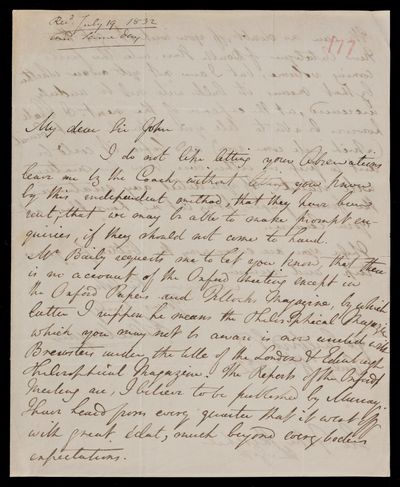 Recd July 19 1832
ansd Same day
177
My dear Sir John
I do not like letting your Observations
leave me by the Coach, without letting you know
by this independent method, that they have been
sent, that we may be able to make prompt en
quiries, if they should not come to hand.
Mr Baily requests me to let you know that there
is no account of the Oxford Meeting except in
the Oxford Papers and Tillochs Magazine, by which
latter I suppose he means the Philosophical Magazine
which you may not be aware is now united with
Brewsters under the title of the London & Edinburgh
Philosophical Magazine. The Reports of the Oxford
Meeting are, I believe to be published by Murray.
I have heard from every quarter that it went off
with great éclat, much beyond every bodies
expectations.